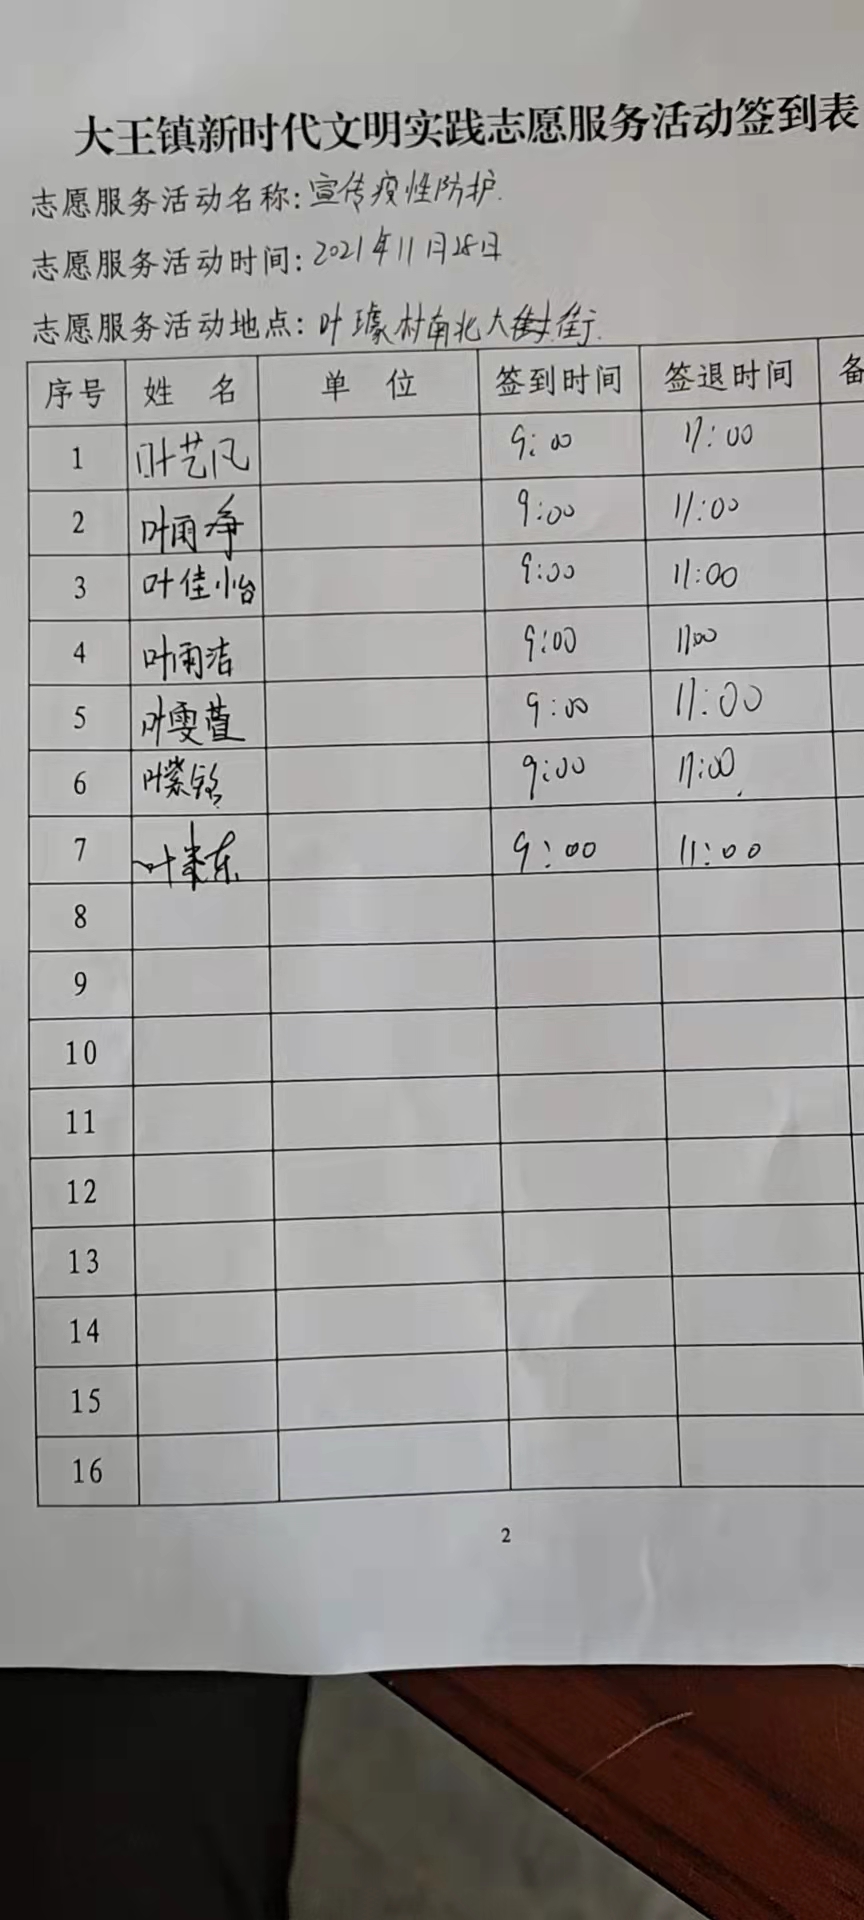 大王镇新时代文明实践志愿服务活动签到表
志愿服务活动名称:宣传疫性防护.
志愿服务活动时间:2021年11月28日
志愿服务活动地点:叶璩村南北大街.
序号 姓 名 单 位 签到时间 签退时间 备
1 叶艺凡 9:00 11:00
2 叶雨净 9:00 11:00
3 叶佳怡 9:00 11:00
4 叶雨洁 9:00 11:00
5 叶雯萱 9:00 11:00
6 叶紫铭 9:00 11:00
7 叶 东 9:00 11:00
8
9
10
11
12
13
14
15
16
2